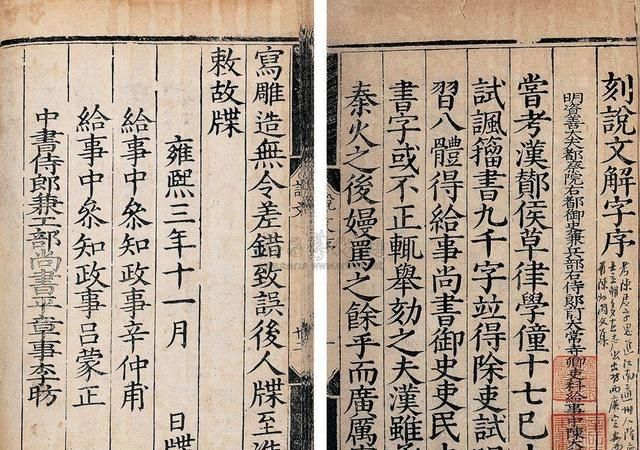 刻説文解字序
明資善大夫都察院右都御史兼兵部右侍郎前太常寺卿吏科給事中陳大
嘗考漢酇侯草律學僮十七巳
試諷籀書九千字竝得除吏試
習八體得給事尚書御史吏民
書字或不正輒舉劾之夫漢雖
秦火之後嫚罵之餘乎而廣厲
説文
寫雕造無令差錯致誤後人牒至准
敕故牒
雍熙三年十一月 日牒
給事中叅知政事辛仲甫
給事中叅知政事吕蒙正
中書侍郎兼工部尚書平章事李昉